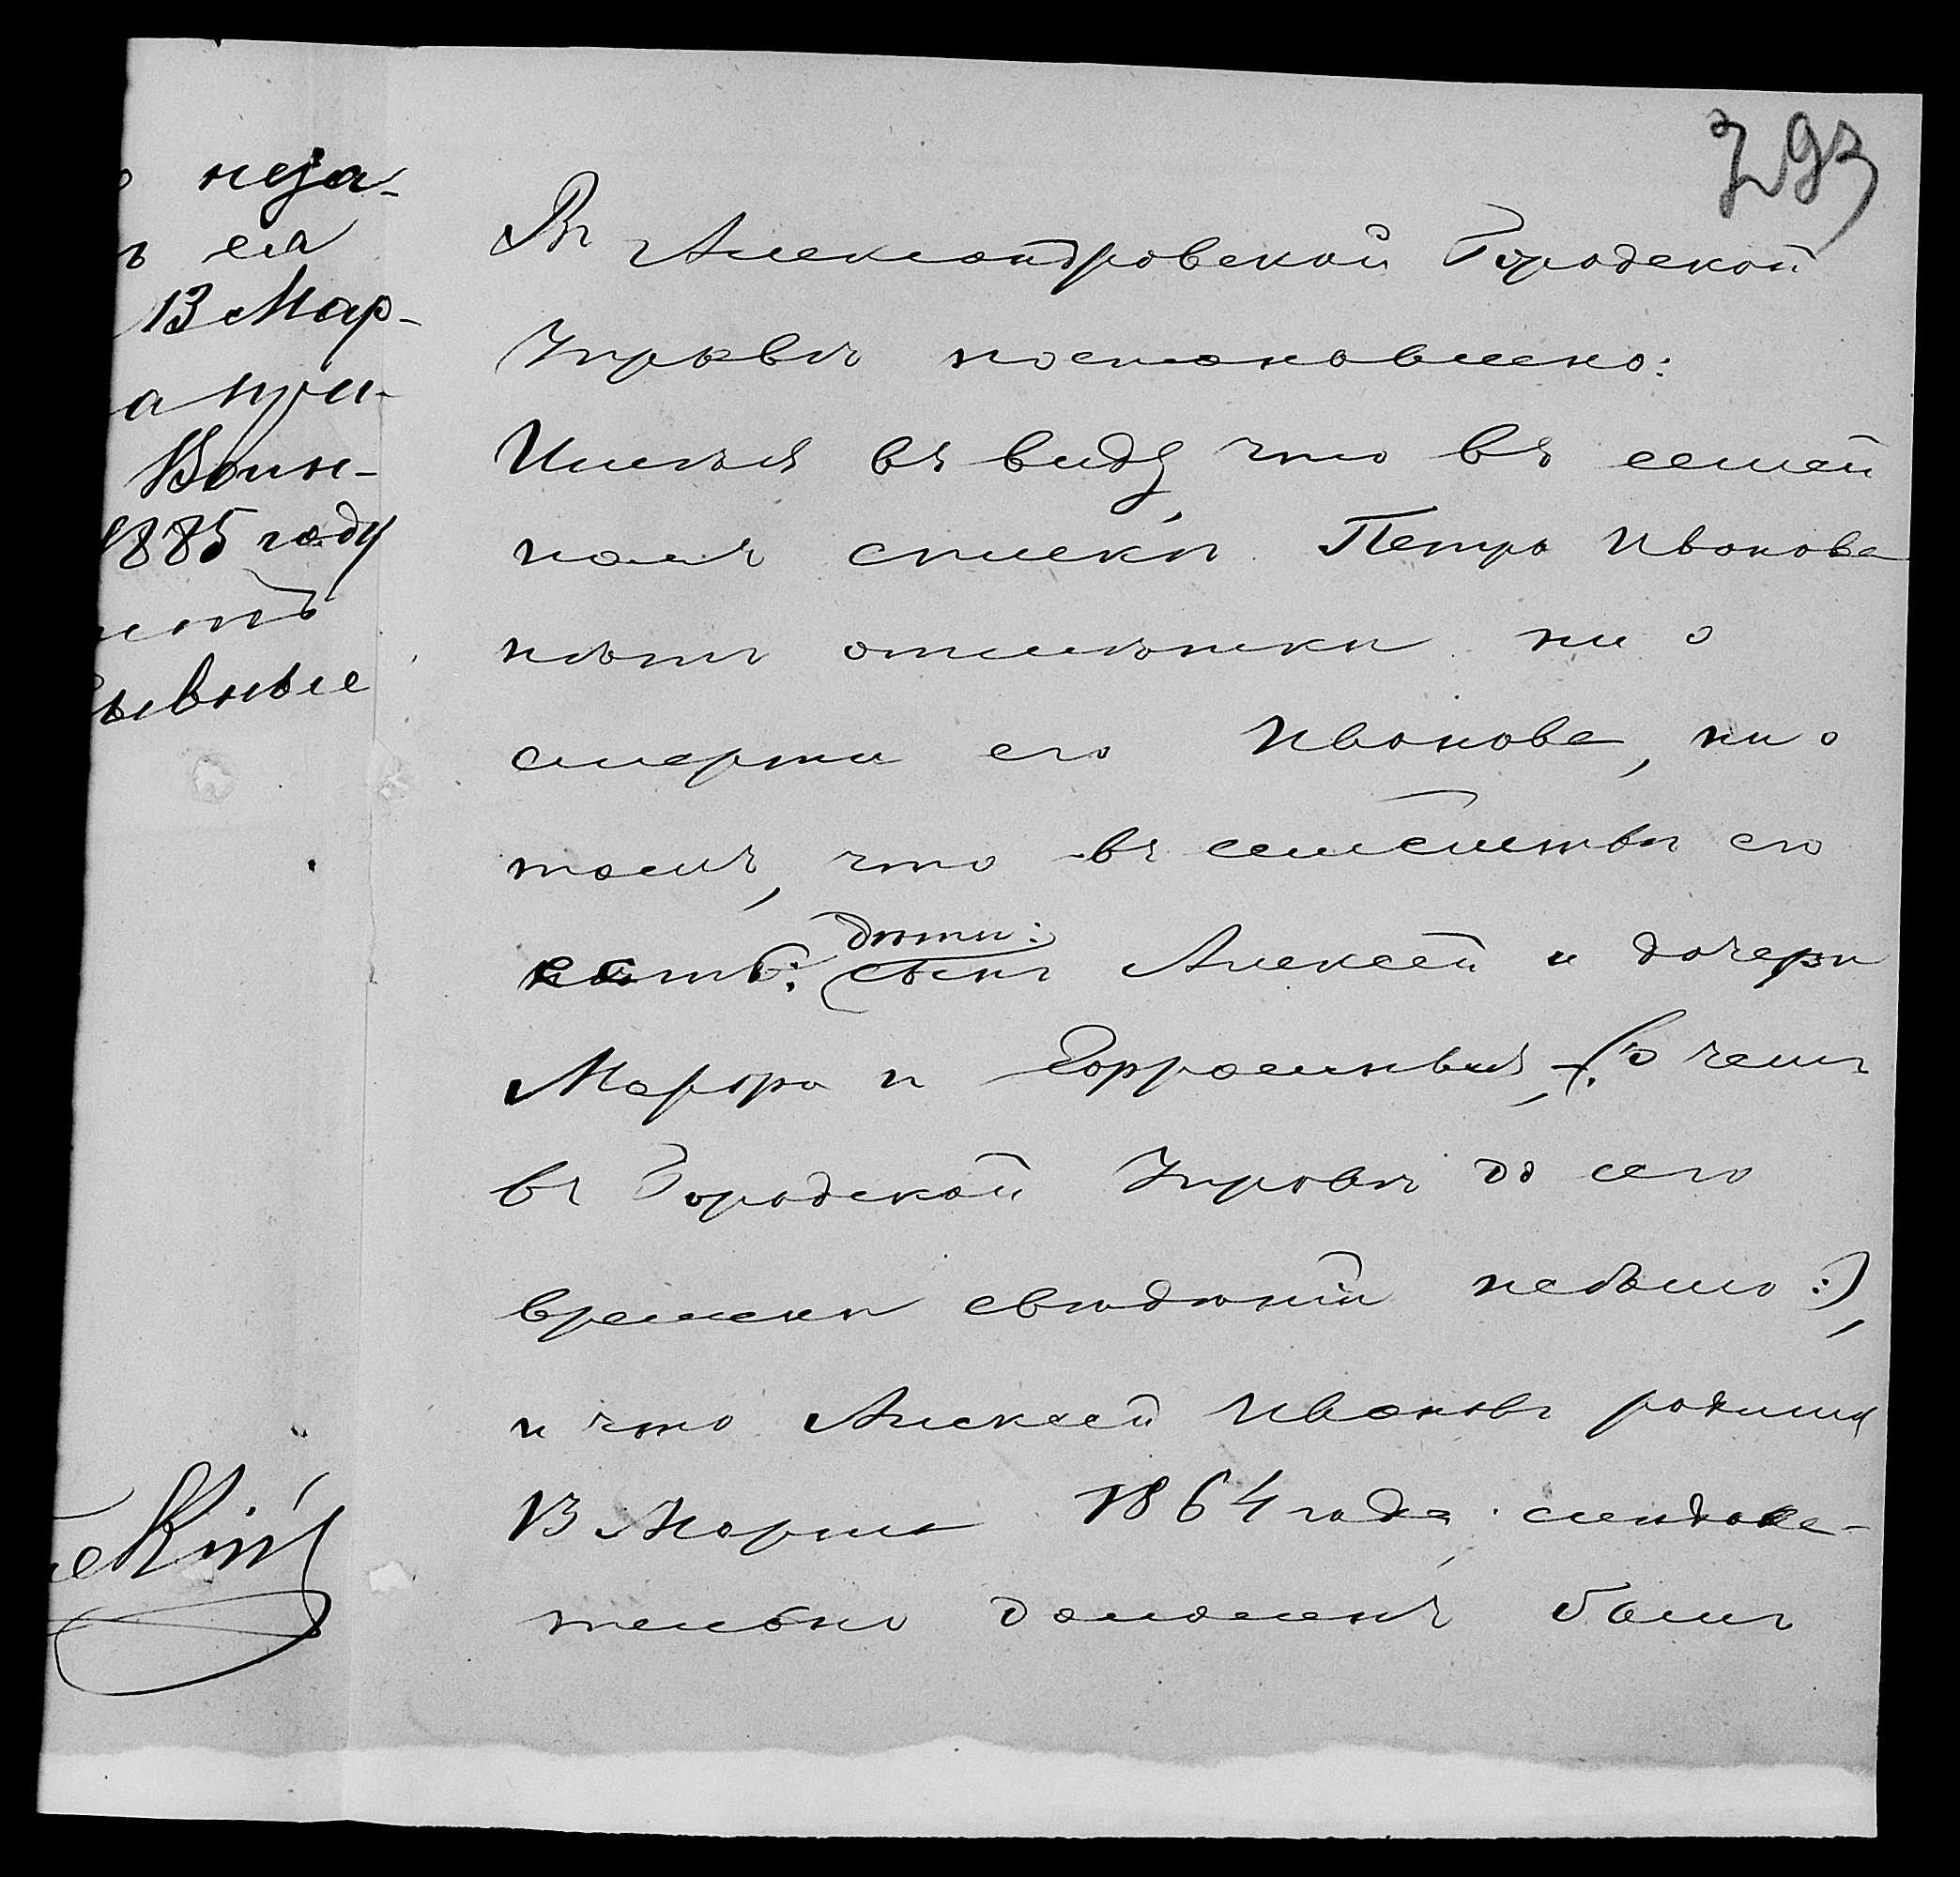 293
неза-
ъ ея
13 Мар-
а при-
Воин-
1885 году
ывные
скій
Въ Александровской Городской
Управѣ постановлено:
Имѣя въ виду, что въ семей
номъ спискѣ Петра Иванова
нѣтъ отмѣтки ни о
смерти его Иванова, ни о
томъ, что въ семействѣ его
есть: дѣти:
сынъ Алексѣй и дочери
Марфа и (:о чемъ
въ Городской Управѣ до сего
времени свѣдѣній небыло:),
и что Алексѣй Ивановъ родился
13 Марта 1864 года, слѣдова-
тельно долженъ былъ